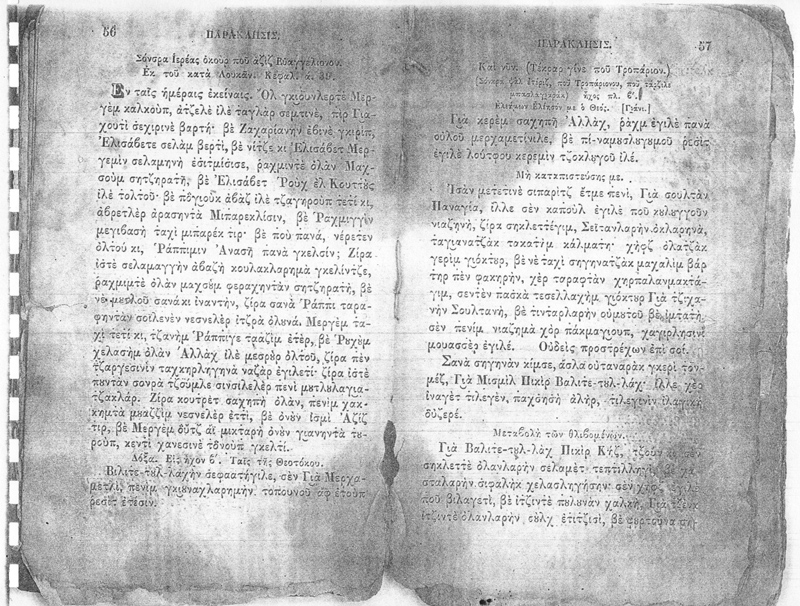 56 ΠΑΡΑΚΛΗΣΙΣ.
Σόνσρα Ιερέας ὀκοὺρ ποῦ ἀζὶζ Εὐαγγέλιονον.
Ἐκ τοῦ κατὰ Λουκᾶν. Κεφαλ. ά. 39.
Ἐν ταῖς ἡμέραις ἐκείναις. Ὂλ γκιοὺνλερτὲ Μερ-
γὲμ καλκοὺπ, ἀτζελὲ ἰλὲ ταγλὰρ σεμτινὲ, πὶρ Για-
χουτὶ σεχιρινὲ βαρτή· βὲ Ζαχαρίανὴν ἐβινὲ γκιρὶπ,
Ἐλισάβετε σελὰμ βερτὶ, βὲ νίτζε κι Ἐλισάβετ Μερ-
γεμὶν σελαμηνὴ ἐσιτμίσισε, ῥαχμιντὲ ὀλὰν Μαχ-
σοὺμ σητζηρατὴ, βὲ Ἐλισάβετ Ῥοὺχ ἐλ Κουττοὺς
ἰλὲ τολτού· βὲ πὸγιοὺκ ἀβὰζ ἰλὲ τζαγηροὺπ τετὶ κι,
ἀβρετλὲρ ἀρασηντὰ Μιπαρεκλίσιν, βὲ Ῥαχμιγγὶν
μεγιβασὴ ταχὶ μιπαρέκ τιρ· βὲ ποῦ πανὰ, νέρετεν
ὀλτοὺ κι, Ῥάππιμιν Ἀνασὴ πανὰ γκελσίν; Ζίρα
ἰστὲ σελαμαγγὴν ἀβαζὴ κουλακλαρημὰ γκελίντζε,
ῥαχμιμτὲ ὀλὰν μαχσοὺμ φεραχηντὰν σητζηρατὴ, βὲ
νὲ μουτλοὺ σανὰ κι ἰναντὴν, ζίρα σανὰ Ῥάππι ταρα-
φηντὰν σοϊλενὲν νεσνελὲρ ἰτζρὰ ὀλουνά. Μεργὲμ τα-
χὶ τετὶ κι, τζανὴμ Ῥάππιγε τααζὶμ ἐτὲρ, βὲ Ῥυχοὺμ
χελασὴμ ὀλὰν Ἀλλὰχ ἰλὲ μεσροὺρ ὀλτοὺ, ζίρα πὲν
τζαργεσινὶν ταχηρληγηνὰ ναζὰρ ἐγιλετί· ζίρα ἰστὲ
πυντὰν σονρὰ τζοὺμλε σινσιλελὲρ πενὶ μυτλυλαγια-
τζακλάρ. Ζίρα κουτρὲτ σαχηπὴ ὀλὰν, πενὶμ χακ-
κημτὰ μυαζζὶμ νεσνελὲρ ἐττὶ, βὲ ὀνοὺν ἰσμὶ Ἀζὶζ
τιρ, βὲ Μεργὲμ οὒτζ ἀϊ μικταρὴ ὀνοὺν γιανηντὰ τυ-
ροὺπ, κεντὶ χανεσινὲ τὸνοὺπ γκελτί.
Δόξα. Εἰς ἦχον β´. Ταῖς τῆς Θεοτόκου.
Βιλιτε-τοὺλ-λάχην σεφαατήγιλε, σὲν Γιὰ Μερχα-
μετλὶ, πενὶμ γκιουναχλαρημὴν τοπουνοὺ ἀφ ἐτοὺπ
ῥεσὶτ ἐτεσίν.
ΠΑΡΑΚΛΗΣΙΣ. 57
Καὶ νῦν. (Τέκραρ γίνε ποῦ Τροπάριον.)
ἦχος πλ. β´.
Ἐλεήμων Ἐλέησόν με ὁ Θεός. [Γιάνι.]
Γιὰ κερὲμ σαχηπὴ Ἀλλὰχ, ῥάχμ ἐγιλὲ πανὰ
οὐλοὺ μερχαμετίνιλε, βὲ πι-ναμυσλυγυμοῦ ῥεσὶτ
ἐγιλὲ λούτφου κερεμὶν τζοκλυγοῦ ἰλέ.
Μὴ καταπιστεύσῃς με.
Ἰσὰν μετετινὲ σιπαρὶτζ ἔτμε πενὶ, Γιὰ σουλτὰν
Παναγία, ἴλλε σὲν καποὺλ ἐγιλὲ ποῦ κυλυγγοῦν
νιαζηνὴ, ζίρα σηκλεττέγιμ, Σεϊτανλαρὴν ὀκλαρηνὰ,
ταγιανατζὰκ τακατὴμ κάλματι· χὴφζ ὀλατζὰκ
γερὶμ γιόκτυρ, βὲ νὲ ταχὶ σηγηνατζὰκ μαχαλὶμ βὰρ
τηρ πὲν φακηρὴν, χὲρ ταραφτὰν χηρπαλανμακτά-
γιμ, σεντὲν πασκὰ τεσελλαχὴμ γιόκτυρ Γιὰ τζιχα-
νὴν Σουλτανὴ, βὲ τινταρλαρὴν οὐμυτοῦ βὲ ἰμτατὴ,
σὲν πενὶμ νιαζημὰ χὸρ πάκμαγιουπ, χαγιρλησινὶ
μουασσὲρ ἐγιλέ. Οὐδεὶς προστρέχων ἐπὶ σοί.
Σανὰ σηγηνὰν κίμσε, ἄσλα οὐταναρὰκ γκερὶ τον-
μὲζ, Γιὰ Μισμὶλ Πικὶρ Βαλιτε-τοὺλ-λάχ· ἴλλε χὲρ
ἰναγὲτ τιλεγὲν, παχσησὴ ἀλὴρ, τιλεγινὶν
δύζερέ.
Μεταβολὴ τῶν θλιβομένων.
Γιὰ Βαλιτε-τοὺλ-λὰχ Πικὶρ Κὴζ,
σηκλεττὲ ὀλανλαρὴν σελαμὲτ
σταλαρὴν σιφαλὴκ χελασληγήσην· σὲν
ποῦ βιλαγετὶ, βὲ ἰτζιντὲ πυλυνὰν χαλκὴ,
ἰτζιντὲ ὀλανλαρὴν σοὺλχ ἐτίτζισὶ, βὲ φυρτουνα